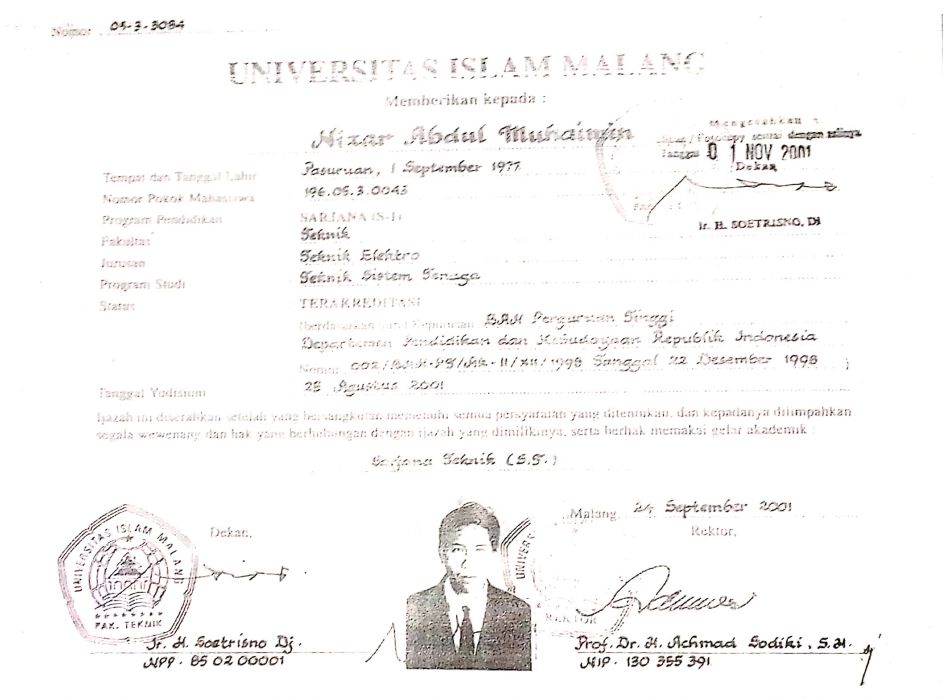 Nomor 05-3-3084
UNIVERSITAS ISLAM MALANG
Memberikan kepada :
Nizar Abdul Muhaimin
Mengesahkan
Fotocopy sesuai dengan aslinya
Tanggal 0 1 NOV 2001
Dekan
Ir. H. SOETRISNO, DJ
Tempat dan Tanggal Lahir Pasuruan, 1 September 1977
Nomor Pokok Mahasiswa 196.05.3.0043
Program Pendidikan SARJANA (S-1)
Fakultas Teknik
Jurusan Teknik Elektro
Program Studi Teknik Sistem Tenaga
Status TERAKREDITASI
Berdasarkan Surat Keputusan BAN Perguruan Tinggi
Departemen Pendidikan dan Kebudayaan Republik Indonesia
Nomor 002/BAN-PT/Ak-II/XII/1998 Tanggal 22 Desember 1998 ;
Tanggal Yudisium 25 Agustus 2001
Ijazah ini diserahkan setelah yang bersangkutan memenuhi semua persyaratan yang ditentukan, dan kepadanya dilimpahkan
segala wewenang dan hak yang berhubungan dengan ijazah yang dimilikinya, serta berhak memakai gelar akademik :
Sarjana Teknik (S.T.)
Malang, 24 September 2001
Dekan,
Rektor,
UNIVERSITAS ISLAM MALANG
FAK. TEKNIK
UNIVERS
REKTOR
Ir. H. Soetrisno Dj.
NPP. 85 02 00001
Prof. Dr. H. Achmad Sodiki, S.H.
NIP. 130 355 391